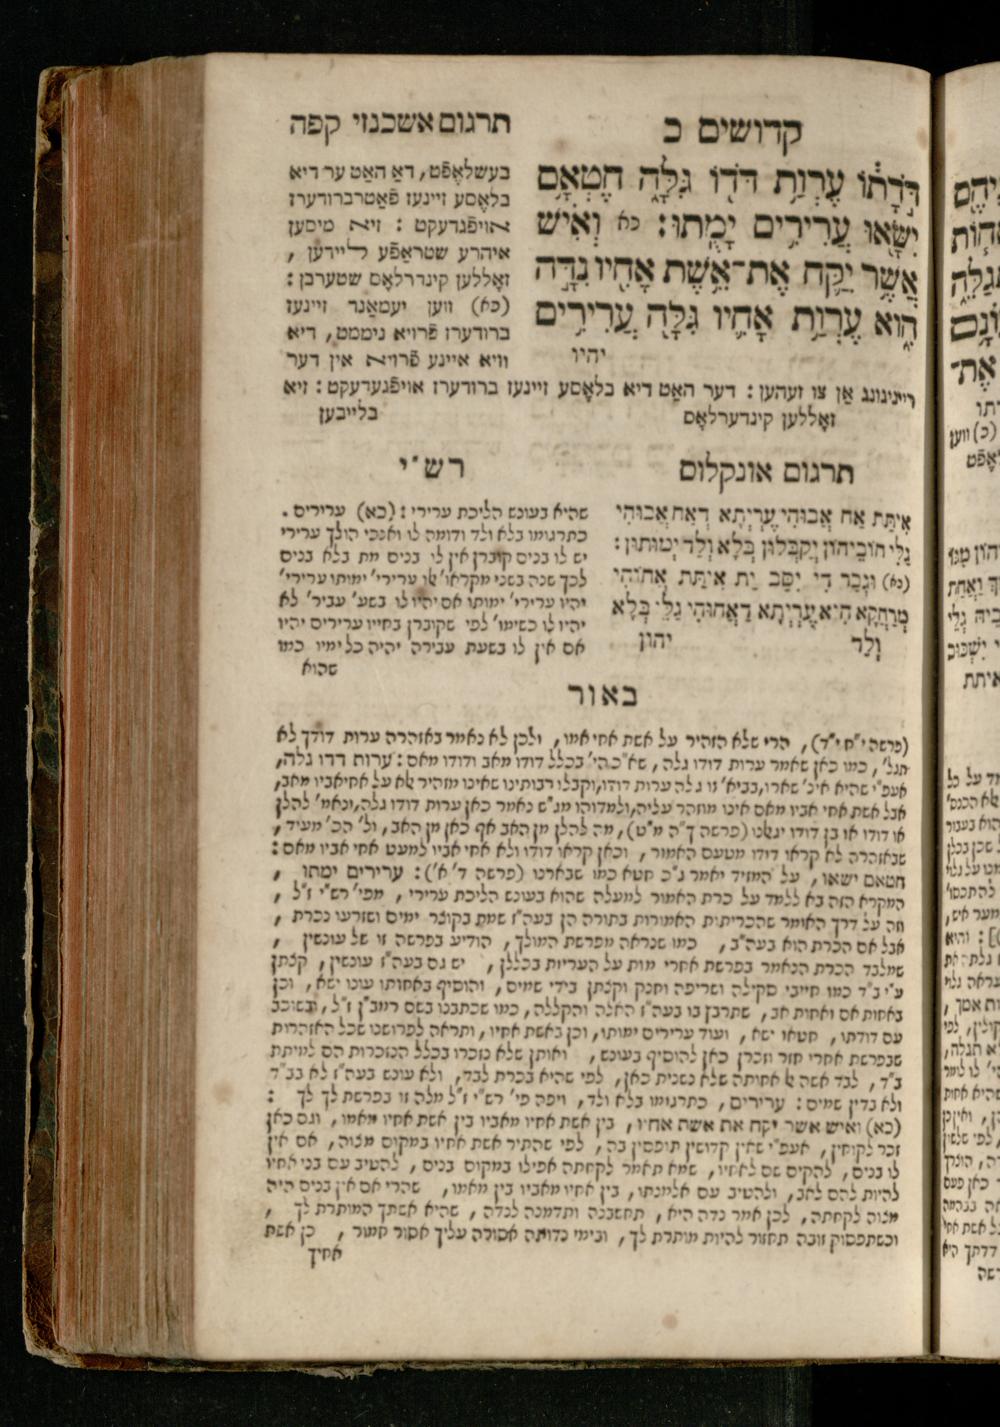 קדושים כ
תרגום אשכנזי קפה
דֹּֽדָת֔וֹ עֶרְוַ֥ת דֹּד֖וֹ גִּלָּ֑ה חֶטְאָ֥ם
יִשָּׂ֖אוּ עֲרִירִ֥ים יָמֻֽתוּ: כא וְאִ֗ישׁ
אֲשֶׁ֥ר יִקַּ֛ח אֶת־אֵ֥שֶׁת אָחִ֖יו נִדָּ֣ה
הִ֑וא עֶרְוַ֥ת אָחִ֛יו גִּלָּ֖ה עֲרִירִ֥ים
יהיו
בעשלאָפֿט, דאַ האַט ער דיא
בלאָסע זיינעז פֿאַטרברודערז
אויפֿגדעקט : זיא מיסען
איהרע שטראַפֿע ליידען ,
זאָללען קינדרלאָס שטערבן :
(כא) ווען יעמאַנד זיינעז
ברודערז פֿרויא ניממט, דיא
וויא איינע פֿרויא אין דער
רייניגונג אַן צו זעהען : דער האַט דיא בלאָסע זיינעז ברודערז אויפֿגעדעקט : זיא
זאָללען קינדערלאָס בלייבען
תרגום אונקלוס
אִיתַּת אַח אֲבוּהִי עֶרְיְתָא דְאַח אֲבוּהִי
גַּלִּי חוֹבֵיהוֹן יְקַבְּלוּן בְּלָא וְלַד יְמוּתוּן :
(כא) וּגְבַר דִּי יִסַּב יַת אִיתַּת אֲחוּהִי
מְרַחֲקָא הִיא עֶרְיְתָא דַאֲחוּהִי גַּלִּי בְּלָא
וְלַד יהון
רש״י
שהיא בעונש הליכת ערירי : (כא) ערירים .
כתרגומו בלא ולד ודומה לו ואנכי הולך ערירי
יש לו בנים קוברן אין לו בנים מת בלא בנים
לכך שנה בשני מקראו׳ אלו ערירי׳ ימותו ערירי׳
יהיו ערירי׳ ימותו אם יהיו לו בשע׳ עביר׳ לא
יהיו לו כשימו׳ לפי שקוברן בחייו ערירים יהיו
אם אין לו בשעת עבירה יהיה כל ימיו כמו
שהוא
באור
(פרשה י״ח י״ד), הרי שלא הזהיר על אשת אחי אמו, ולכן לא נאמר באזהרה ערות דודך לא
תגל׳, כמו כאן שאמר ערות דודו גלה, בכלל דודו מאב ודודו מאם : ערות דדו גלה,
אעפ״י שהיא שארו, ערות דודו, וקבלו רבותינו שאינו מזהיר אלא על אחי אביו מאב,
אבל אשת אחי אביו מאם אינו מוזהר עליה, ולמדוהו מג״ש נאמר כאן ערות דודו גלה, ונאמ׳ להלן
או דודו או בן דודו יגאלנו (פרשה כ״ה מ״ט), מה להלן מן האב אף כאן מן האב, ול׳ הכ׳ מעיד,
שבאזהרה לא קראו דודו מטעם האמור, וכאן קראו דודו ולא אחי אביו למעט אחי אביו מאם :
חטאם ישאו, על המזיד יאמר ג״כ חטא כמו שבארנו (פרשה ד׳ א׳) : ערירים ימתו ,
המקרא הזה בא ללמד על כרת האמור למעלה שהוא בעונש הליכת ערירי, מפי׳ רש״י ז״ל ,
וזה על דרך האומר שהכריתית האמורות בתורה הן בעה״ז שמת בקוצר ימים ושזרעו נכרת ,
אבל אם הכרת הוא בעה״ב, כמו שנראה מפרשת המולך, הודיע בפרשה זו של עונשין ,
שמלבד הכרת הנאמר בפרשת אחרי מות על העריות בכללן, יש גם בעה״ז עונשין, קצתן
ע״י ב״ד כמו חייבי סקילה ושריפה וחנק וקצתן בידי שמים, והוסיף באחותו עונו ישא, וכן
באחות אם ואחות אב, שתרבן בו בעה״ז האלה והקללה, כמו שכתבנו בשם רמב״ן ז״ל, ובשוכב
עם דודתו, חטאו ישא, ועוד ערירים ימותו, וכן באשת אחיו, ותראה לפרושנו שכל האזהרות
שבפרשת אחרי חזר וזכרן כאן להוסיף בעונש, ואותן שלא נזכרו בכלל הנזכרות הם למיתת
ב״ד, לבד אשה אל אחותה שלא נשנית כאן, לפי שהיא בכרת לבד, ולא עונש בעה״ז לא בב״ד
ולא בדין שמים : ערירים, כתרגומו בלא ולד, ויפה פי׳ רש״י ז״ל מלה זו בפרשת לך לך :
(כא) ואיש אשר יקח את אשת אחיו, בין אשת אחיו מאביו בין אשת אחיו מאמו, וגם כאן
זכר לקוחין, אעפ״י שאין קדושין תופסין בה, לפי שהתיר אשת אחיו במקום מצוה, אם אין
לו בנים, להקים שם לאחיו, שמא תאמר לקחתה אפילו במקום בנים, להטיב עם בני אחיו
להיות להם לאב, ולהטיב עם אלמנתו, בין אחיו מאביו בין מאמו, שהרי אם אין בנים היה
מצוה לקחתה, לכן אמר נדה היא, תחשבנה ותדמנה לנדה, שהיא אשתך המותרת לך ,
וכשתפסוק זובה תחזור להיות מותרת לך, ובימי נדותה אסורה עליך אסור חמור, כן אשת
אחיך